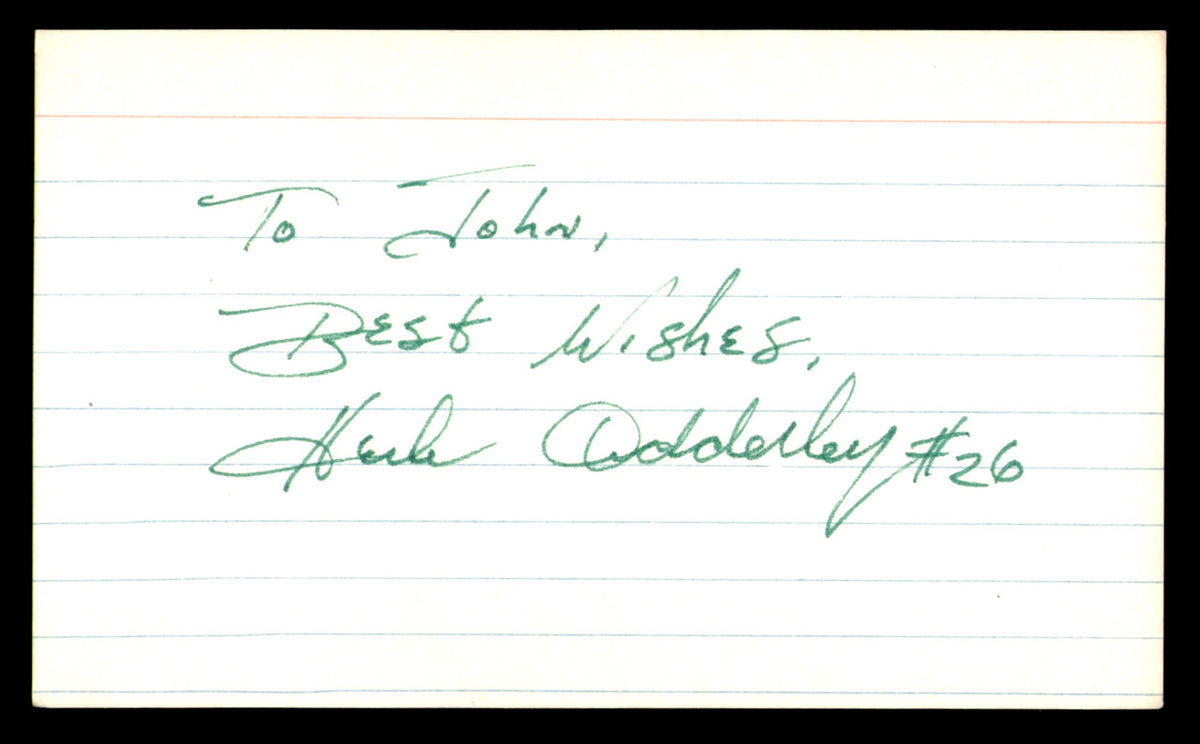 To John,
Best Wishes,
Herb Adderley #26